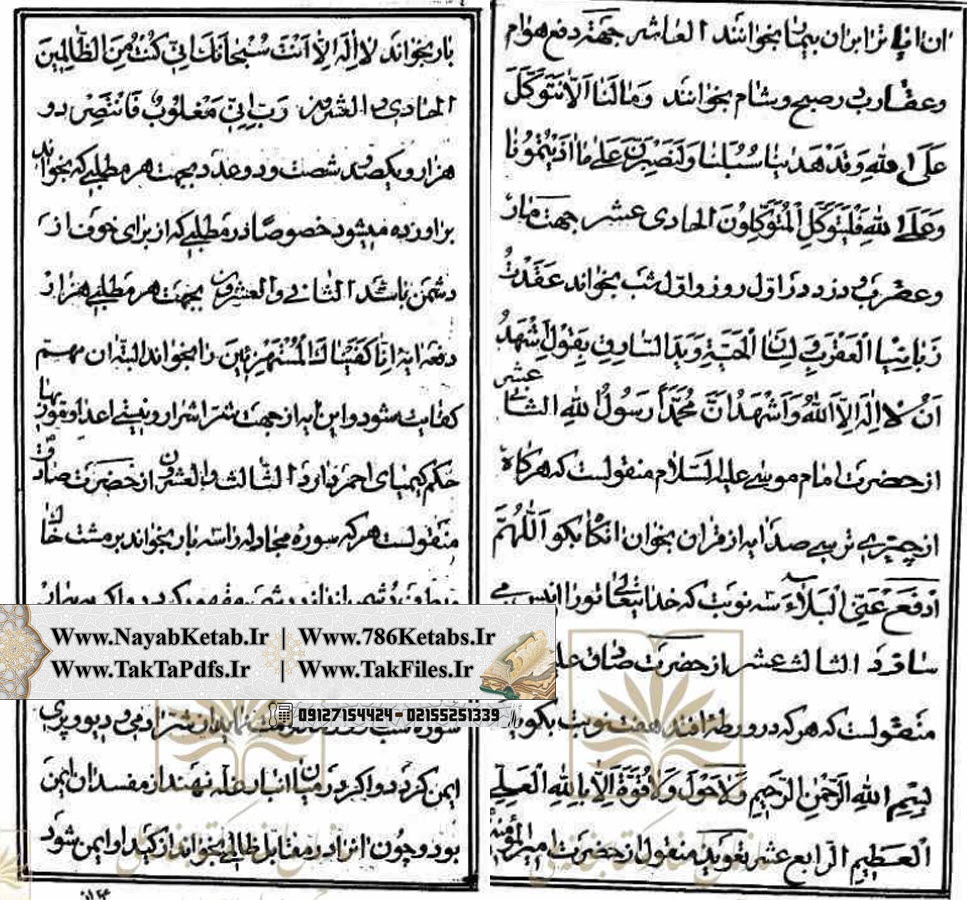 ان ایا ترا بران بیما بخوانند العاشر جهة دفع هوام
و عقارب در صبح و شام بخوانند وَمَالَنَا اَلَّا نَتَوَكَّلَ
عَلَى اللهِ وَقَدْ هَدٰينَا سُبُلَنَا وَلَنَصْبِرَنَّ عَلٰى مَا اٰذَيْتُمُونَا
وَعَلَى اللهِ فَلْيَتَوَكَّلِ الْمُتَوَكِّلُونَ الحادی عشر جهت مار
و عقرب و دزد در اول روز و اول شب بخواند عَقَدْتُ
زَبَانَيَا الْعَقْرَبِ وَلِسَانَ الْحَيَّةِ وَيَدَ السَّارِقِ بِقَوْلِ اَشْهَدُ
اَنْ لَا اِلٰهَ اِلَّا اللهُ وَاَشْهَدُ اَنَّ مُحَمَّدًا رَسُولُ اللهِ الثانی عشر
از حضرت امام موسی علیه السلام منقولست که هر کاه
از چیزی ترسی صد ایه از قران بخوان انکاه بکو اَللّٰهُمَّ
ادْفَعْ عَنِّی الْبَلَاءَ سه نوبت که خدایتعالی تو را ایمن می
سازد الثالث عشر از حضرت صادق علیه
منقولست که هر که در ورطه افتد هفت نوبت بکوید
بِسْمِ اللهِ الرَّحْمٰنِ الرَّحِيمِ وَلَا حَوْلَ وَلَا قُوَّةَ اِلَّا بِاللهِ الْعَلِيِّ
الْعَظِيمِ الرابع عشر تعویذ منقول از حضرت امیر المؤمنین
بار بخواند لَا اِلٰهَ اِلَّا اَنْتَ سُبْحَانَكَ اِنِّى كُنْتُ مِنَ الظَّالِمِينَ
الحادی و العشرین رَبِّ اِنِّى مَغْلُوبٌ فَانْتَصِرْ دو
هزار و یکصد و شصت و دو عدد بجهت هر مطلبی که بخواند
براورده میشود خصوصا در مطلبی که از برای خوف از
دشمن باشد الثانی و العشرون بجهت هر مطلبی هزار
دفعه ایه اِنَّا كَفَيْنَاكَ الْمُسْتَهْزِئِينَ را بخواند البته ان مهم
کفایت میشود و این ایه از جهت شر اشرار و نیستی اعدا و قهر انها
حکم کیمیای احمر دارد الثالث و العشرون از حضرت صادق
منقولست هر که سوره مجادله را سه بار بخواند بر مشت خاک
و بطرف دشمن اندازد دشمن مقهور کردد و اکر
Www.NayabKetab.Ir | Www.786Ketabs.Ir
Www.TakTaPdfs.Ir | Www.TakFiles.Ir
09127154424 - 02155251339
سوره شب از شر ادمی و دیو و پری
ایمن کردد و اکر در میان انبار غله نهند از مفسدان ایمن
بود و چون انرا در مقابل ظالمی بخواند از کید او ایمن شود